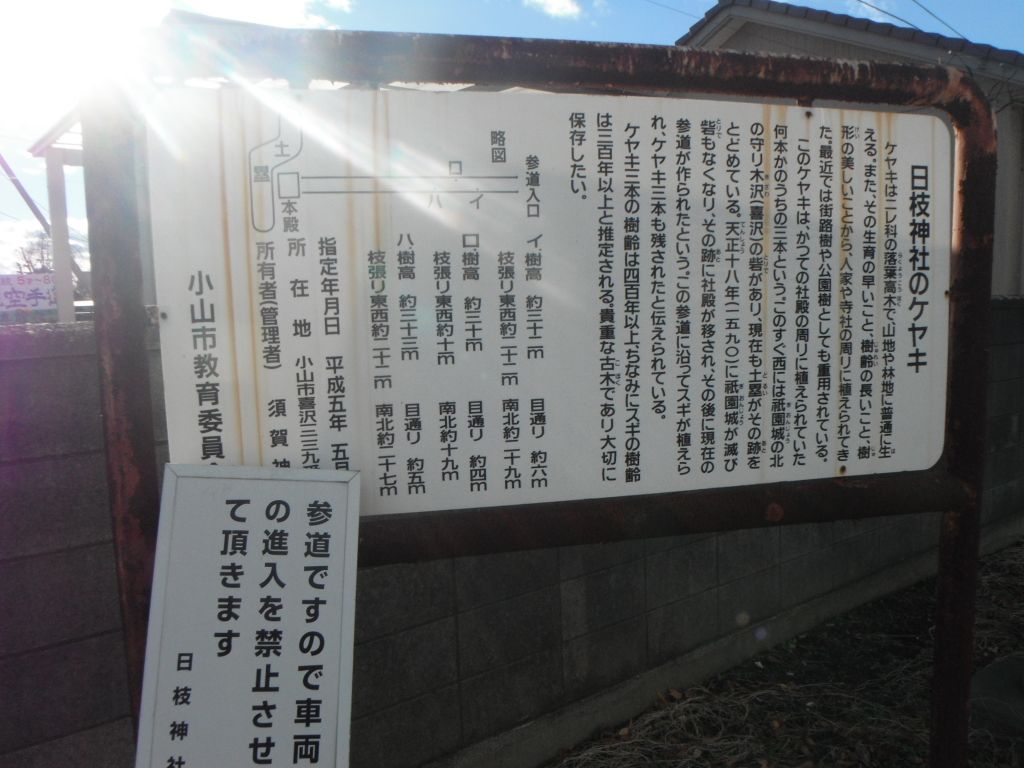 日枝神社のケヤキ
ケヤキはニレ科の落葉高木で、山地や林地に普通に生
える。また、その生育の早いこと、樹齢の長いこと、樹
形の美しいことから、人家や寺社の周りに植えられてき
た。最近では街路樹や公園樹としても重用されている。
このケヤキは、かつての社殿の周りに植えられていた
何本かのうちの三本という。このすぐ西には祇園城の北
の守り木沢（喜沢）の砦があり、現在も土塁がその跡を
とどめている。天正十八年（一五九〇）に祇園城が滅び
砦もなくなり、その跡に社殿が移され、その後に現在の
参道が作られたという。この参道に沿ってスギが植えら
れ、ケヤキ三本も残されたと伝えられている。
ケヤキ三本の樹齢は四百年以上、ちなみにスギの樹齢
は三百年以上と推定される。貴重な古木であり大切に
保存したい。
略図
参道入口
イ
ロ
ハ
本殿
土
塁
イ、樹高 約三十二m 目通り 約六m
枝張り東西約二十二m 南北約二十九m
ロ、樹高 約三十m 目通り 約四m
枝張り東西約十m 南北約十九m
ハ、樹高 約三十三m 目通り 約五m
枝張り東西約二十二m 南北約二十七m
指定年月日 平成五年 五月
所在地 小山市喜沢一三三九
所有者（管理者） 須賀神
小山市教育委員
参道ですので車両
の進入を禁止させ
て頂きます
日枝神社
空手道